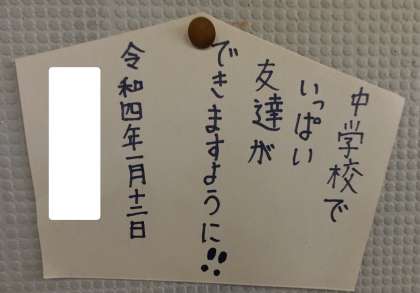 中学校で
いっぱい
友達が
できますように!!
令和四年一月十二日